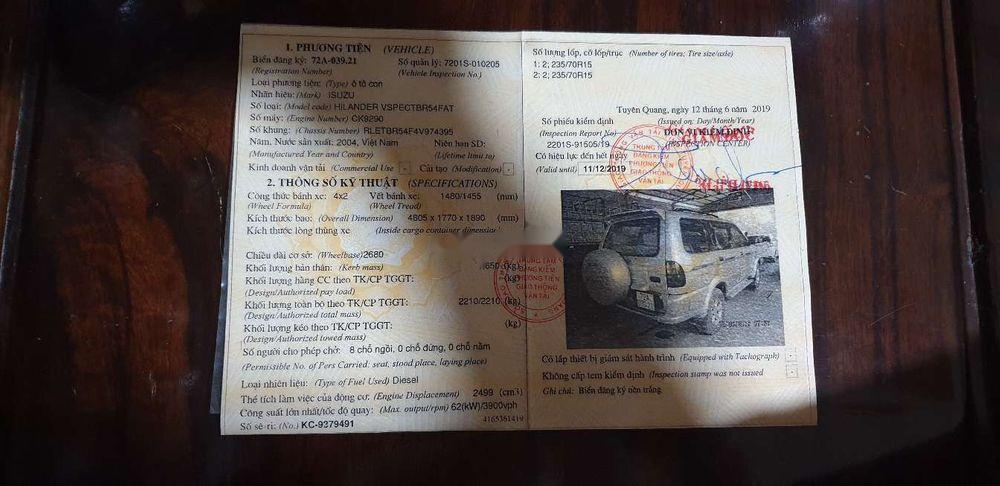 1. PHƯƠNG TIỆN (VEHICLE)
Biển đăng ký: 72A-039.21 Số quản lý: 7201S-010205
(Registration Number) (Vehicle Inspection No.)
Loại phương tiện: (Type) ô tô con
Nhãn hiệu: (Mark) ISUZU
Số loại: (Model code) HILANDER VSPECTBR54FAT
Số máy: (Engine Number) CK9290
Số khung: (Chassis Number) RLETBR54F4V974395
Năm, Nước sản xuất: 2004, Việt Nam Niên hạn SD:
(Manufactured Year and Country) (Lifetime limit to)
Kinh doanh vận tải (Commercial Use) - Cải tạo (Modification) -
2. THÔNG SỐ KỸ THUẬT (SPECIFICATIONS)
Công thức bánh xe: 4x2 Vết bánh xe: 1480/1455 (mm)
(Wheel Formula) (Wheel Tread)
Kích thước bao: (Overall Dimension) 4805 x 1770 x 1890 (mm)
Kích thước lòng thùng xe (Inside cargo container dimension)
Chiều dài cơ sở: (Wheelbase) 2680
Khối lượng bản thân: (Kerb mass) 650 (kg)
Khối lượng hàng CC theo TK/CP TGGT: (kg)
(Design/Authorized pay load)
Khối lượng toàn bộ theo TK/CP TGGT: 2210/2210 (kg)
(Design/Authorized total mass)
Khối lượng kéo theo TK/CP TGGT: (kg)
(Design/Authorized towed mass)
Số người cho phép chở: 8 chỗ ngồi, 0 chỗ đứng, 0 chỗ nằm
(Permissible No. of Pers Carried: seat, stood place, laying place)
Loại nhiên liệu: (Type of Fuel Used) Diesel
Thể tích làm việc của động cơ: (Engine Displacement) 2499 (cm³)
Công suất lớn nhất/tốc độ quay: (Max. output/rpm) 62(kW)/3900vph
Số sê-ri: (No.) KC-9379491 4165361419
Số lượng lốp, cỡ lốp/trục (Number of tires; Tire size/axle)
1: 2; 235/70R15
2: 2; 235/70R15
Tuyên Quang, ngày 12 tháng 6 năm 2019
Số phiếu kiểm định (Issued on: Day/Month/Year)
(Inspection Report No) ĐƠN VỊ KIỂM ĐỊNH
2201S-91505/19 (INSPECTION CENTER)
Có hiệu lực đến hết ngày
(Valid until) 11/12/2019
GIÁM ĐỐC
TRUNG TÂM
ĐĂNG KIỂM
PHƯƠNG TIỆN
GIAO THÔNG
VẬN TẢI
TRUNG TÂM
ĐĂNG KIỂM
PHƯƠNG TIỆN
GIAO THÔNG
VẬN TẢI
Có lắp thiết bị giám sát hành trình (Equipped with Tachograph) -
Không cấp tem kiểm định (Inspection stamp was not issued -
Ghi chú: Biển đăng ký nền trắng